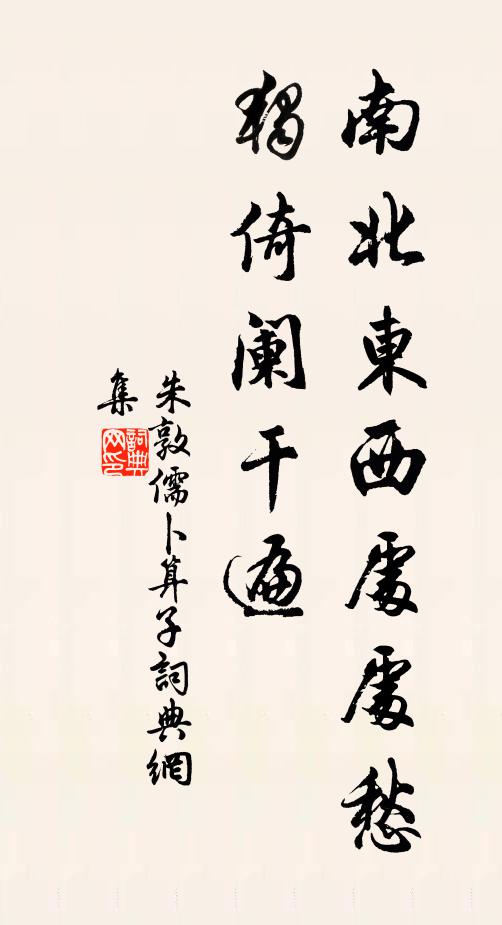 南北東西處處愁
獨倚闌干遍
朱敦儒卜算子詞典網
集
詞典网印